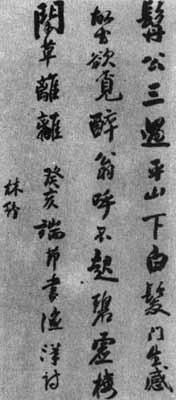 髯公三過平山下白髮门生感
欲覓醉翁呼不起碧虛樓
閣草離離 癸亥端節書漁洋詩
林